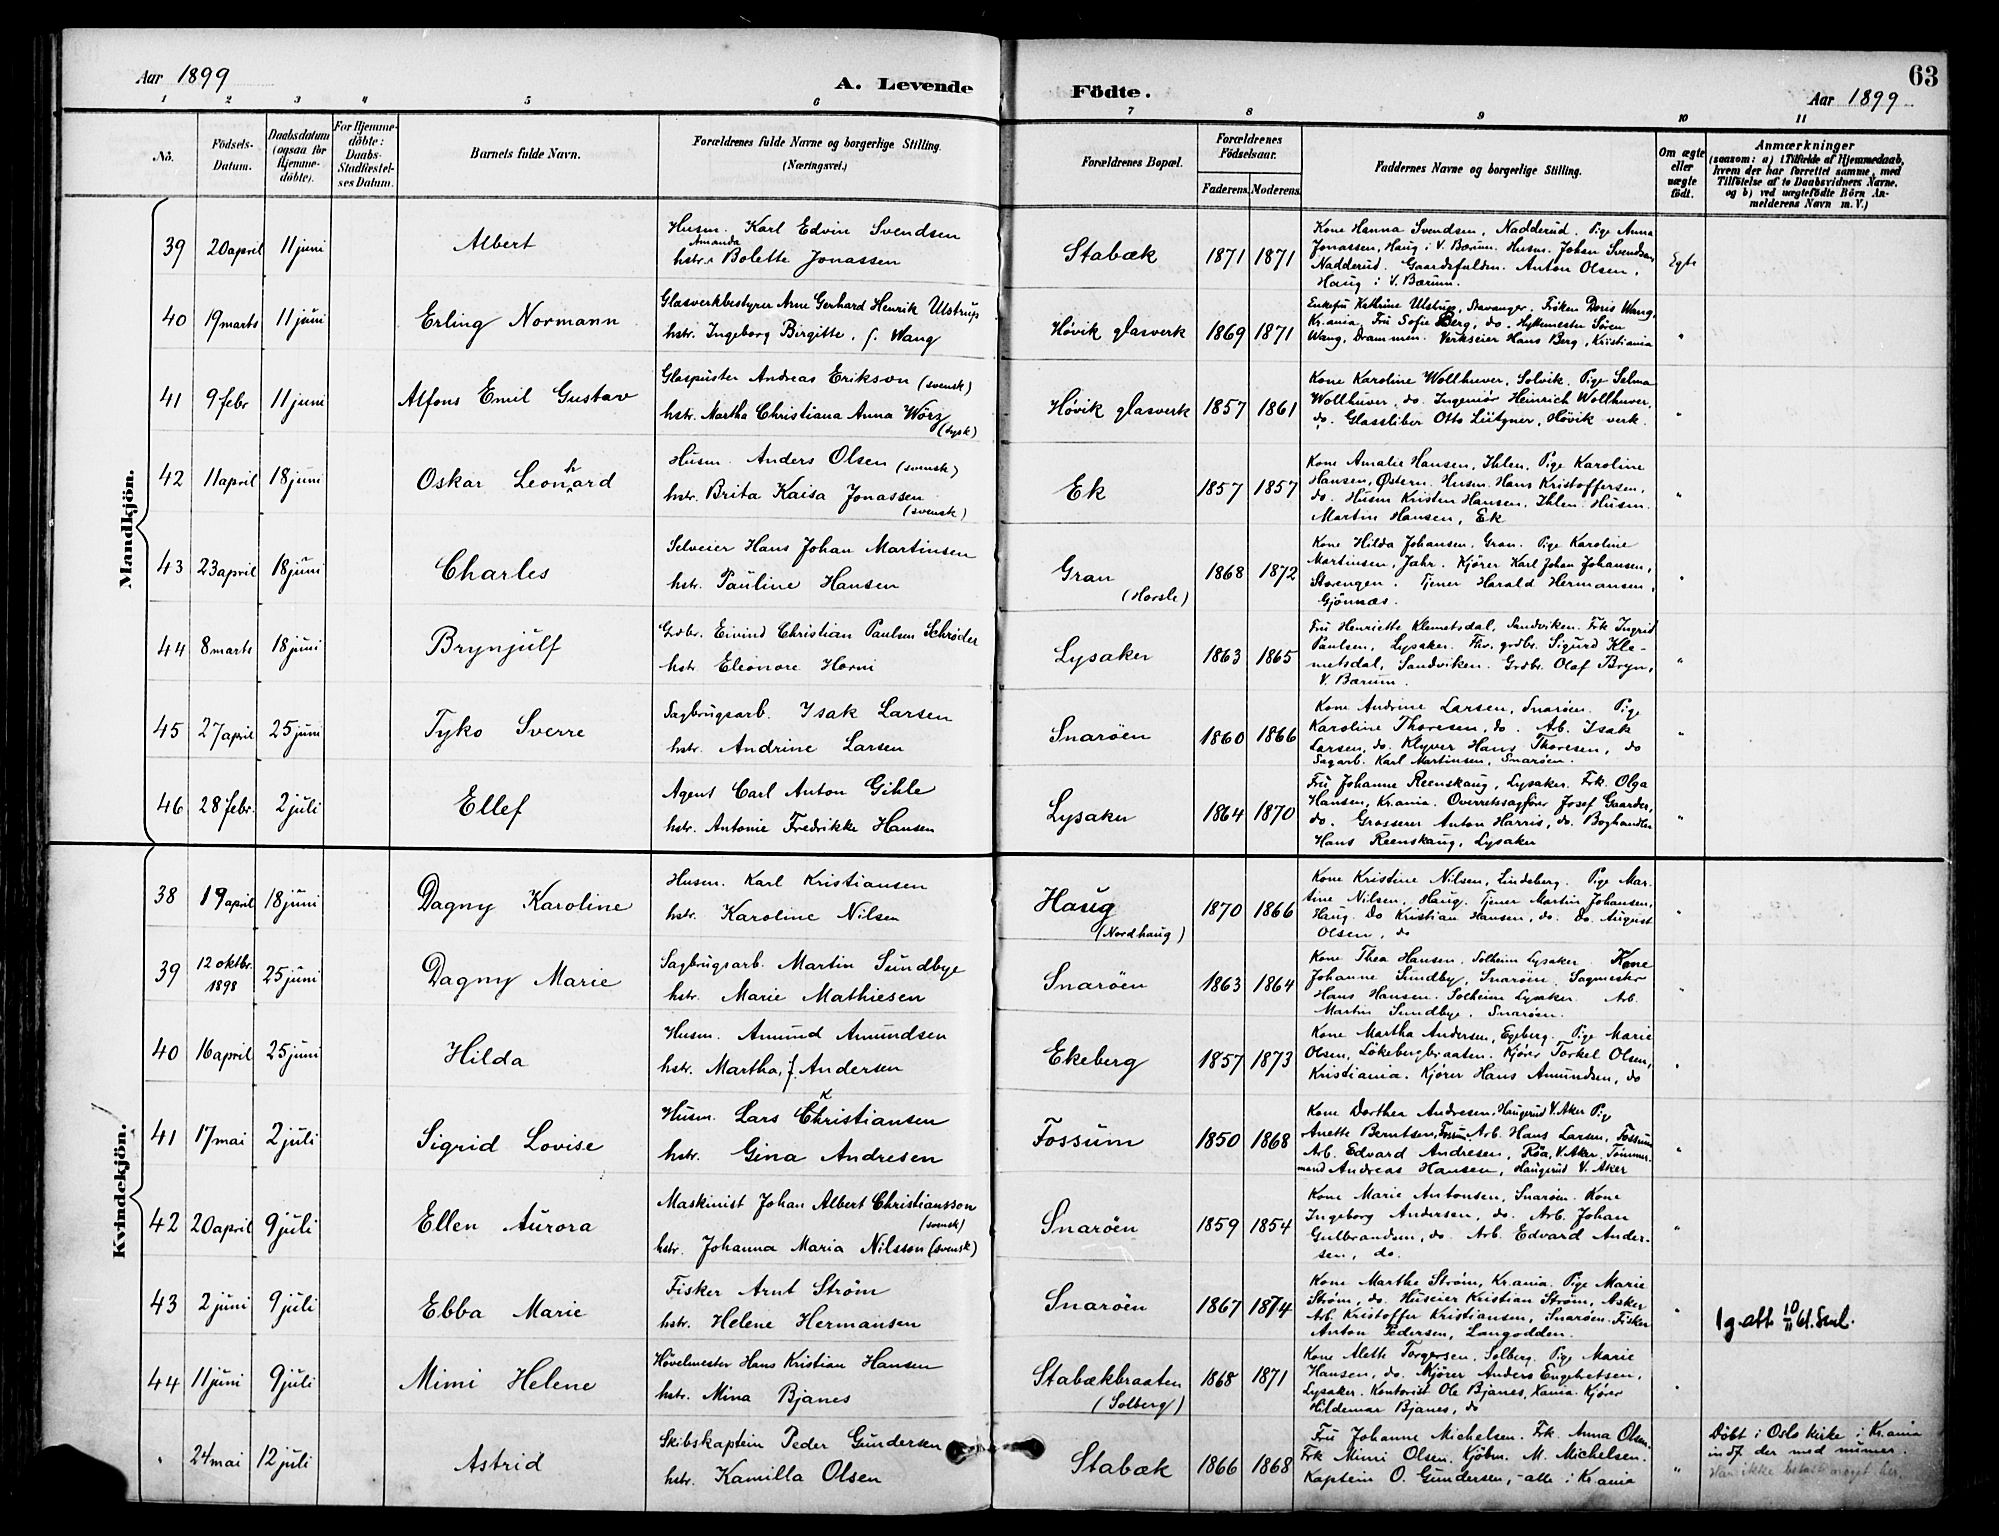 Aar 1899
A. Levende
Födte.
63
Aar 1899
1 2 3 4 5 6 7 8 9 10 11
No.
Födsels-Datum.
Daabsdatum (ogsaa for Hjemme-döbte).
For Hjemme-döbte: Daabs-Stadfæstel-ses Datum.
Barnets fulde Navn.
Forældrenes fulde Navne og borgerlige Stilling.
(Næringsvei.)
Forældrenes Bopæl.
Forældrenes Födselsaar.
Faderens. Moderens.
Faddernes Navne og borgerlige Stilling.
Om ægte eller uægte födt.
Anmærkninger
(saasom: a) i Tilfælde af Hjemmedaab,
hvem der har forrettet samme, med
Tilföielse af to Daabsvidners Navne,
og b) ved uægtefödte Börn An-
melderens Navn m. V.)
Mandkjön.
39 20 april 11 juni Albert
Husm. Karl Edvin Svendsen
Amanda
hstr. Bolette Jonassen
Stabæk 1871 1871
Kone Hanna Svendsen, Nadderud. Pige Anna
Jonassen, Haug i V. Bærum. Husm. Johan Svendsen
Nadderud. Gaardsfuldm. Anton Olsen,
Haug i V. Bærum.
Egte
40 19 marts 11 juni Erling Normann
Glasverkbestyrer Arne Gerhard Henrik Ulstrup
hstr. Ingeborg Birgitte, f. Wang
Høvik glasverk 1869 1871
Enkefru Kathrine Ulstrup, Stavanger. Frøken Doris Wang,
Kr.ania. Fru Sofie Berg, do. Hyttemester Søren
Wang, Drammen. Verkseier Hans Berg, Kristiania
"
41 9 febr 11 juni Alfons Emil Gustav
Glaspuster Andreas Erikson (svensk)
hstr. Martha Christiana Anna Wörz
(tysk)
Høvik glasverk 1857 1861
Kone Karoline Wollhuver, Solvik. Pige Selma
Wollhuver, do. Ingeniør Heinrich Wollhuver,
do. Glassliber Otto Lütgner, Høvik verk.
"
42 11 april 18 juni Oskar Leonhard
Husm. Anders Olsen (svensk)
hstr. Brita Kaisa Jonassen
(svensk)
Ek 1857 1857
Kone Amalie Hansen, Ihlen. Pige Karoline
Hansen, Østern. Husm. Hans Kristoffersen,
do. Husm Kristen Hansen, Ihlen. Husm.
Martin Hansen, Ek
"
43 23 april 18 juni Charles
Selveier Hans Johan Martinsen
hstr. Pauline Hansen
Gran
(Horsle)
1868 1872
Kone Hilda Johansen, Gran. Pige Karoline
Martinsen, Jahr. Kjører Karl Johan Johansen,
Storengen. Tjener Harald Hermansen,
Gjønnæs.
"
44 8 marts 18 juni Brynjulf
Grdbr. Eivind Christian Paulsen Schrøder
hstr Eleonore Horni
Lysaker 1863 1865
Fru Henriette Klemetsdal, Sandviken. Frk Ingrid
Paulsen, Lysaker. Fhv. grdbr. Sigurd Kle-
metsdal, Sandviken. Grdbr. Olaf Bryn,
V. Bærum.
"
45 27 april 25 juni Tyko Sverre
Sagbrugsarb. Isak Larsen
hstr. Andrine Larsen
Snarøen 1860 1866
Kone Andrine Larsen, Snarøen. Pige
Karoline Thoresen, do. Arb. Isak
Larsen, do. Klyver Hans Thoresen, do
Sagarb. Karl Martinsen, Snarøen.
"
46 28 febr. 2 juli Ellef
Agent Carl Anton Gihle
hstr. Antonie Fredrikke Hansen
Lysaker 1864 1870
Fru Johanne Reenskaug, Lysaker. Frk. Olga
Hansen, Kr.ania. Overretssagfører Josef Gaarder,
do. Grosserer Anton Harris, do. Boghandler
Hans Reenskaug, Lysaker
"
Kvindekjön.
38 19 april 18 juni Dagny Karoline
Husm. Karl Kristiansen
hstr. Karoline Nilsen
Haug
(Nordhaug)
1870 1866
Kone Kristine Nilsen, Lindeberg. Pige Mar-
tine Nilsen, Haug. Tjener Martin Johansen,
Haug. Do Kristian Hansen, do. Do. August
Olsen, do
"
39 12 oktbr. 1898 25 juni Dagny Marie
Sagbrugsarb. Martin Sundbye
hstr. Marie Mathiesen
Snarøen 1863 1864
Kone Thea Hansen, Solheim Lysaker. Kone
Johanne Sundby, Snarøen. Sagmester
Hans Hansen. Solheim Lysaker. Arb.
Martin Sundbye. Snarøen.
"
40 16 april 25 juni Hilda
Husm. Amund Amundsen
hstr. Martha, f. Andersen
Ekeberg 1857 1873
Kone Martha Andersen, Egeberg. Pige Marie
Olsen, Løkebergbraaten. Kjører Torkel Olsen,
Kristiania. Kjører Hans Amundsen, do
"
41 17 mai 2 juli Sigrid Lovise
Husm. Lars Christiansen
hstr. Gina Andresen
Fossum 1850 1868
Kone Dorthea Andresen, Haugerud V. Aker Pige
Anette Berntsen, Fossum. Arb. Hans Larsen, Fossum
Arb. Edvard Andresen, Røa, V. Aker. Tømmer-
mand Andreas Hansen, Haugerud V. Aker
"
42 20 april 9 juli Ellen Aurora
Maskinist Johan Albert Christiansson
(svensk)
hstr. Johanna Maria Nilsson (svensk)
Snarøen 1859 1854
Kone Marie Antonsen, Snarøen. Kone
Ingeborg Andersen, do. Arb. Johan
Gulbrandsen, do. Arb. Edvard Ander-
sen, do.
"
43 2 juni 9 juli Ebba Marie
Fisker Arnt Strøm
hstr. Helene Hermansen
Snarøen 1867 1874
Kone Marthe Strøm, Kr.ania. Pige Marie
Strøm, do. Huseier Kristian Strøm, Asker
Arb. Kristoffer Kristiansen, Snarøen. Fisker
Anton Pedersen, Langodden.
"
1 g. att. 10/11 61.
44 11 juni 9 juli Mimi Helene
Høvelmester Hans Kristian Hansen
hstr. Mina Bjanes
Stabækbraaten
(Solberg)
1868 1871
Kone Alette Torgersen, Solberg. Pige Marie
Hansen, do. Kjører Anders Engebretsen,
Lysaker. Kontorist Ole Bjanes, Xania. Kjører
Hildemar Bjanes, do
"
" 24 mai 12 juli Astrid
Skibskaptein Peder Gundersen
hstr. Kamilla Olsen
Stabæk 1866 1868
Fru Johanne Michelsen. Frk. Anna Olsen.
Frk Mimi Olsen. Kjøbm. M. Michelsen.
Kaptein O. Gundersen, - alle i Kr.ania
"
Døbt i Oslo kirke i Kr.ania
indf. der med numer.
Har ikke betalt noget her.